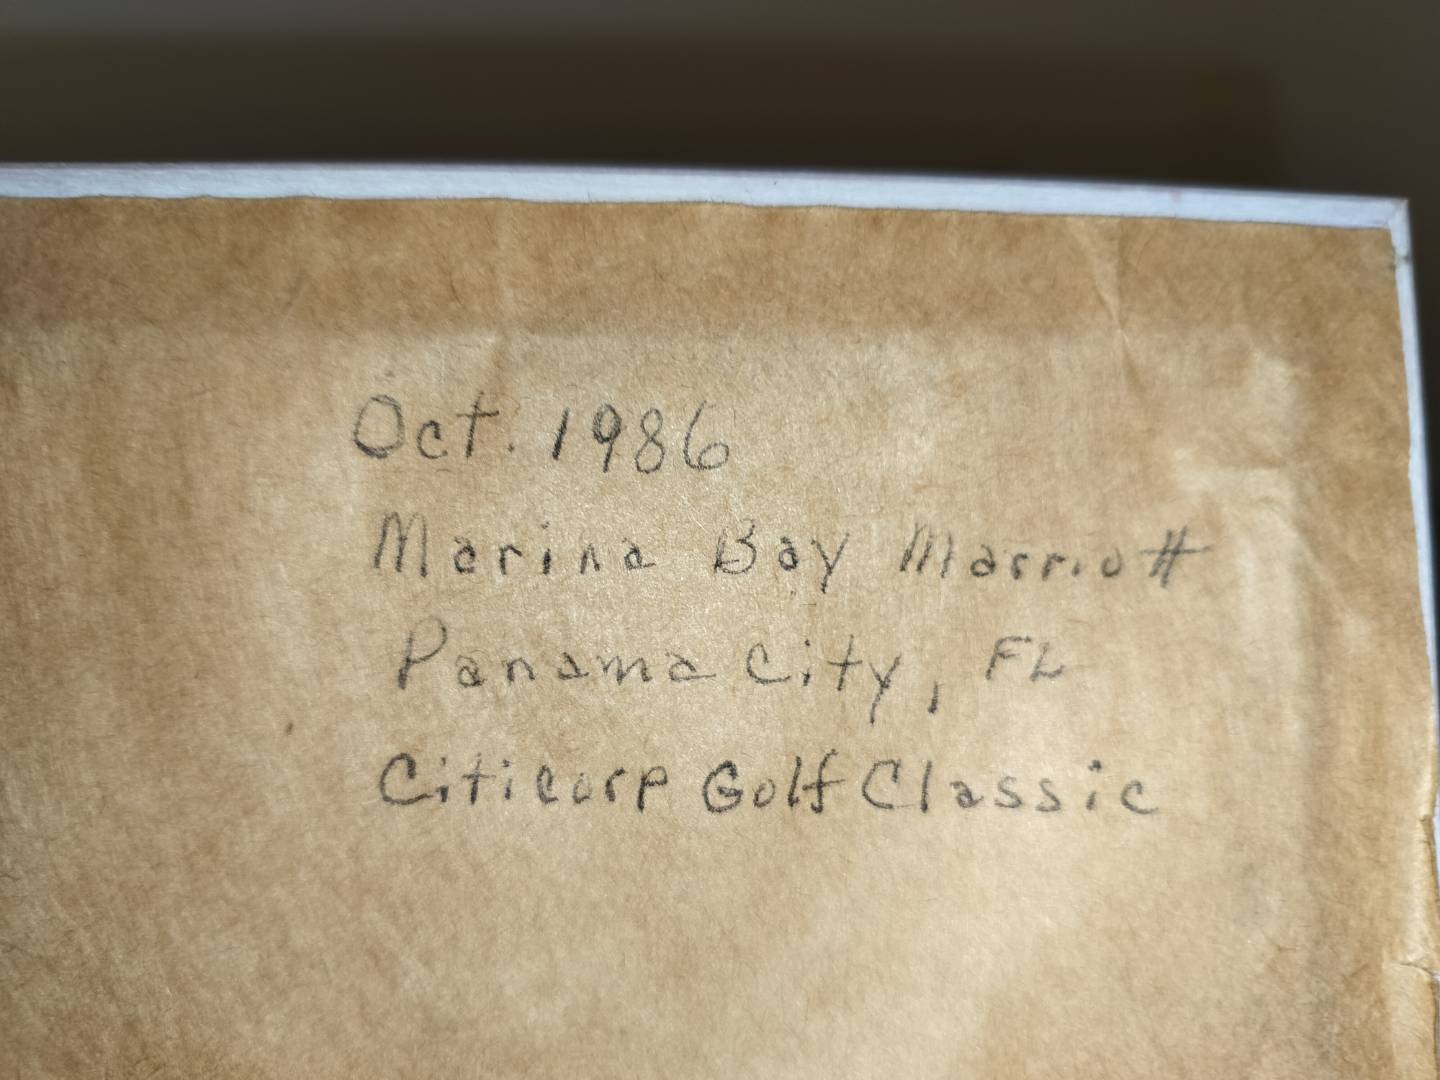 Oct. 1986
Marina Bay Marriott
Panama City, FL
Citicorp Golf Classic